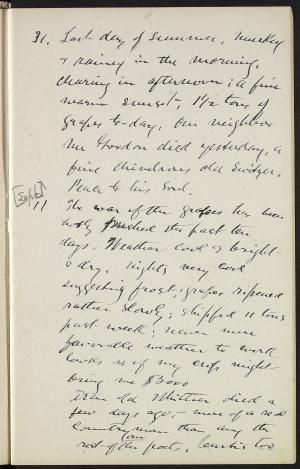 31. Last day of summer, murkey
& rainey in the morning,
clearing in afternoon; A fine
warm sunset, 1½ tons of
grapes to-day, Our neighbor
Mr Gordon died yesterday, a
fine chivalrous old Soldger,
Peace to his Soul.
[Sept]
11 The war of the grapes has been
hotly pushed the past ten
days, Weather cool & bright
& dry, nights very cool
suggesting frost; grapes ripened
rather slowly; shipped 11 tons
past week; never more
favorable weather to work
looks as if my crops might
bring me $3000
Dear old Whittier died a
few days ago, - more of a real
country man than any the
rest of our poets, Courtis too